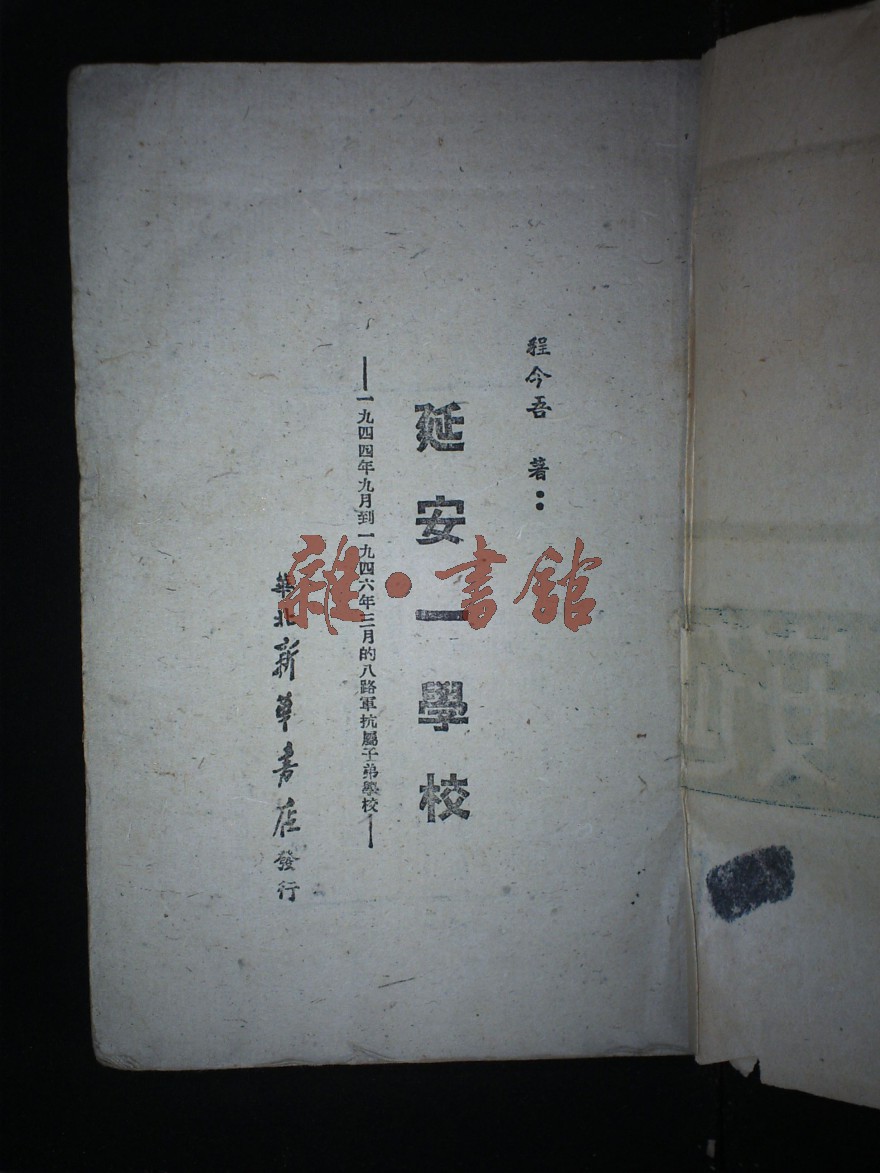 程今吾 著：
延安一學校
——一九四四年九月到一九四六年三月的八路軍抗屬子弟學校——
華北新華書店發行
雜·書館